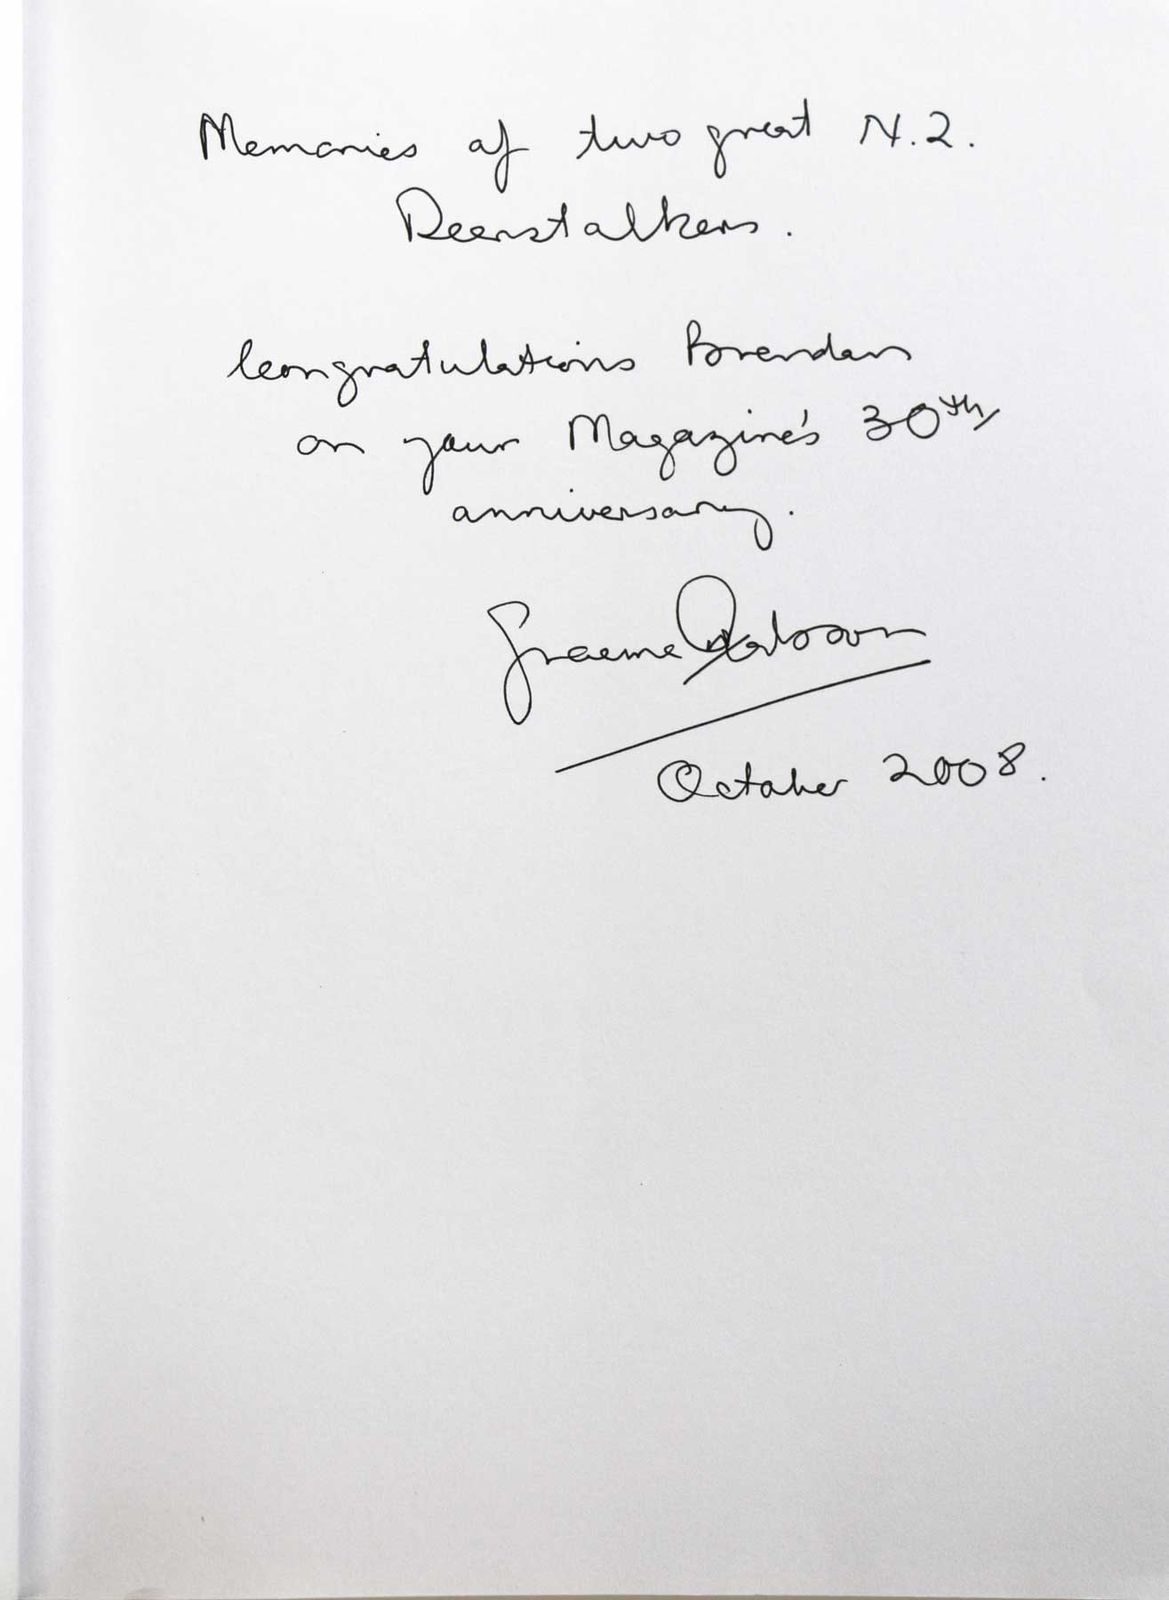 Memories of two great N.Z.
Deerstalkers.
Congratulations Brendan
on your Magazine's 30th
anniversary.
Graeme
October 2008.